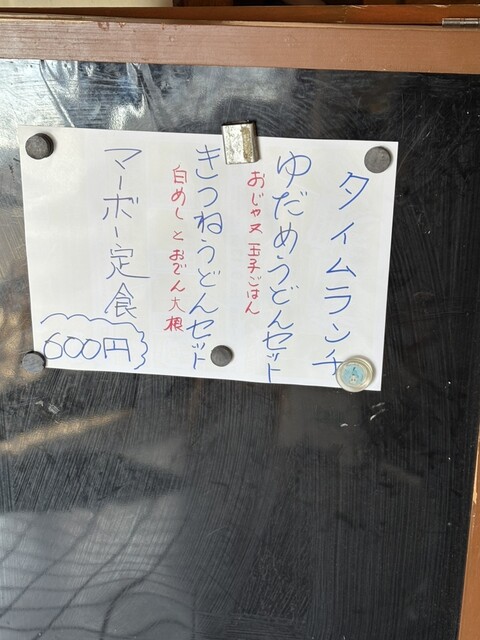 タイムランチ
ゆだめうどんセット
おじや又玉子ごはん
きつねうどんセット
白めしとおでん大根
マーボー定食
600円